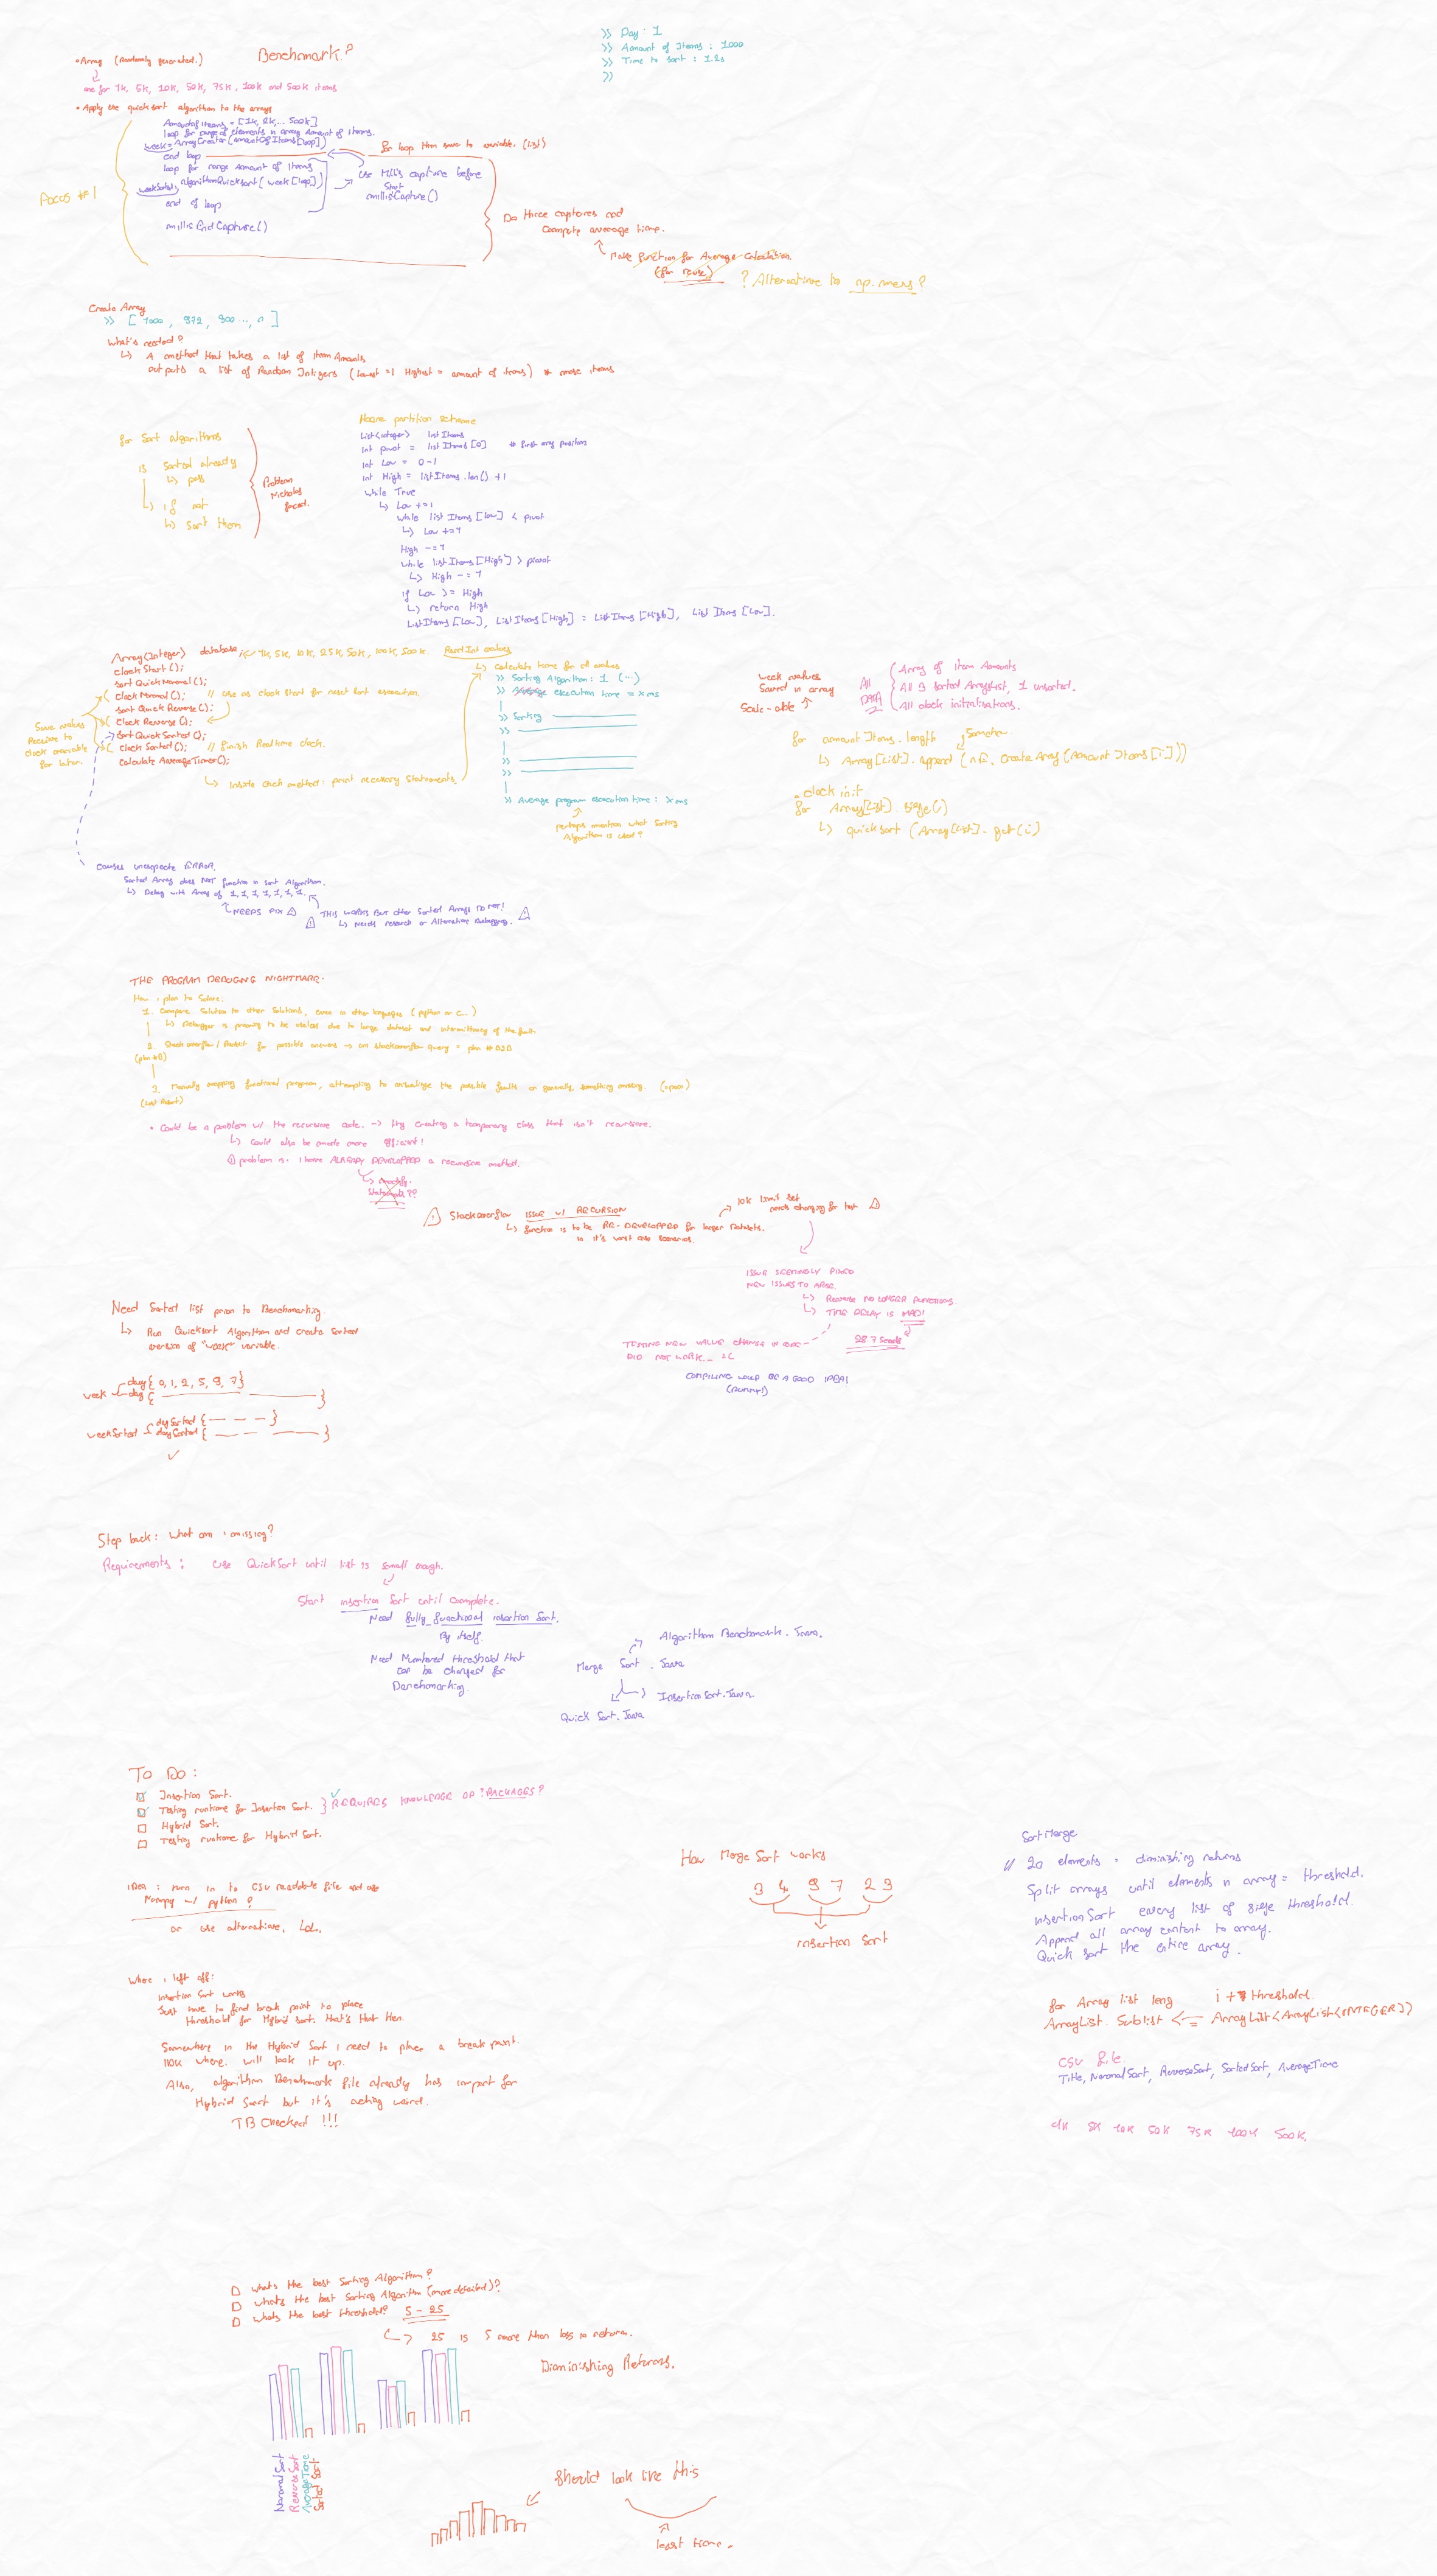 Benchmark?
>> Day: 1
>> Amount of Items: 1000
>> Time to sort: 1.2s
>>
* Array (randomly generated.)
one for 1k, 5k, 10k, 50k, 75k, 100k and 500k items
* Apply the quicksort algorithm to the arrays
Focus #1
AmountofItems = [1k, 2k, ... 500k]
loop for range of elements in array Amount of items.
week = ArrayCreator (amountOfItems[loop])
end loop
for loop then save to variable. (list)
loop for range Amount of Items
weekSorted, algorithmQuicksort( week[loop])
end of loop
millisEndCapture()
Use Millis capture before
Start
millisCapture()
Do three captures and
Compute average time.
Make function for Average Calculation.
(for reuse)
? Alternative to
Create Array
>> [ 1000, 972, 900 ..., n ]
What's needed?
↳ A method that takes a list of item Amounts
outputs a list of Random Integers (lowest = 1 Highest = amount of items) * more items
for Sort algorithms
is Sorted already
↳ pass
↳ if not
↳ Sort them
Problem
Nicholas
faced.
Hoare partition scheme
List<integer> listItems
Int pivot = listItems[0] # first array position
int Low = 0-1
int High = listItems.len() +1
while True
↳ Low +=1
while listItems[Low] < pivot
↳ Low +=1
High -=1
while listItems[High] > pivot
↳ High -=1
if Low >= High
↳ return High
ListItems[Low], ListItems[High] = ListItems[High], ListItems[Low].
Array(Integer) database 1k, 5k, 10k, 25k, 50k, 100k, 500k. RandInt values
clockStart();
sort QuickNormal();
ClockNormal(); // use as clock start for next sort execution.
sort Quick Reverse();
Clock Reverse();
Sort QuickSorted();
Clock Sorted(); // finish Realtime clock.
calculate AverageTimer();
Save values
Receive to
clock variable
for later.
↳ Inside each method: print necessary statements.
↳ Calculate time for all values
>> Sorting Algorithm: 1 (...)
>> Average execution time = x ms
>> Sorting
>>
>>
>>
>> Average program execution time: x ms
perhaps mention what Sorting
Algorithm is used?
week values
Saved in array
Scale-able
All
DATA
Array of item Amounts
All 3 sorted ArrayList, 1 unsorted.
All clock initialisations.
for amount Items.length
↳ Array[List].append ( Create Array (Amount Items [i]))
clock init
for Array[List].size()
↳ quicksort (Array[List].get(i)
causes unexpected ERROR.
Sorted Array does NOT function in Sort Algorithm.
↳ Debug with Array of 1, 1, 1, 1, 1, 1, 1.
NEEDS FIX ⚠
THIS WORKS BUT other Sorted Arrays DO NOT!
⚠ ↳ Needs research or Alternative Debugging. ⚠
THE PROGRAM DEBUGING NIGHTMARE.
How i plan to Solve:
1. Compare Solution to other Solutions, even in other languages (python or c...)
↳ Debugger is proving to be useless due to large dataset and intermittency of the fault
2. Stackoverflow / Reddit for possible answers → on stackoverflow query =
(plan #B)
3. Manually mapping functional program, attempting to visualize the possible faults or generally something missing.
(Last Resort)
* Could be a problem w/ the recursive code. → try creating a temporary class that isn't recursive.
↳ Could also be made more efficient!
⚠ problem is: I have ALREADY DEVELOPPED a recursive method.
↳ modify.
Statements??
⚠ StackOverflow ISSUE w/ RECURSION
↳ function is to be RE-DEVELOPPED for larger Datasets.
in it's worst case scenarios.
10k limit set
needs changing for test ⚠
ISSUE SEEMINGLY FIXED
NEW ISSUES TO ARISE
↳ Reverse NO LONGER FUNCTIONS.
↳ TIME DELAY IS MAD!
28.7 Seconds
TESTING NEW VALUE CHANGE IN CODE
DID NOT WORK... :(
COMPILING WOULD BE A GOOD IDEA!
(DUMMY!)
Need Sorted list prior to Benchmarking.
↳ Run QuickSort Algorithm and create Sorted
version of "WEEK" variable.
week
day { 0, 1, 2, 5, 9, 7 }
day { }
weekSorted
daySorted { — — — }
daySorted { }
Step back: What am i missing?
Requirements: use QuickSort until list is small enough.
Start insertion Sort until Complete.
Need fully functional insertion Sort.
By itself.
Need Numbered threshold that
can be changed for
Benchmarking.
Algorithm Benchmark.Java.
Merge Sort.Java
InsertionSort.Java
Quick Sort.Java
To Do:
☑ Insertion Sort.
☑ Testing runtime for Insertion Sort.
REQUIRES KNOWLEDGE OF ?PACKAGES?
☐ Hybrid Sort.
☐ Testing runtime for Hybrid Sort.
IDEA: turn in to CSV readable file and use
Numpy w/ python?
or use alternative, Lol.
How Merge Sort works
3 4 9 7 2 9
insertion Sort
SortMerge
// 20 elements = diminishing returns
Split arrays until elements in array = threshold.
insertionSort every list of size threshold.
Append all array content to array.
Quick sort the entire array.
for Array list leng i + threshold.
ArrayList.SubList <= ArrayList<ArrayList<INTEGER>>
CSV file
Title, NormalSort, ReverseSort, SortedSort, AverageTime
1k 5k 10k 50k 75k 100k 500k.
Where i left off:
Insertion Sort works
Just have to find break point to place
threshold for Hybrid sort. that's that then.
Somewhere in the Hybrid Sort I need to place a break point
IDK where. will look it up.
Also, algorithm Benchmark file already has import for
Hybrid Sort but it's acting weird.
TB Checked !!!
☐ whats the best Sorting Algorithm?
☐ whats the best Sorting Algorithm (more detailed)?
☐ whats the best threshold? 5 - 25
↳ 25 is 5 more than loss in return.
Diminishing Returns.
NormalSort
ReverseSort
AverageTime
Sorted Sort
Should look like this
least time.